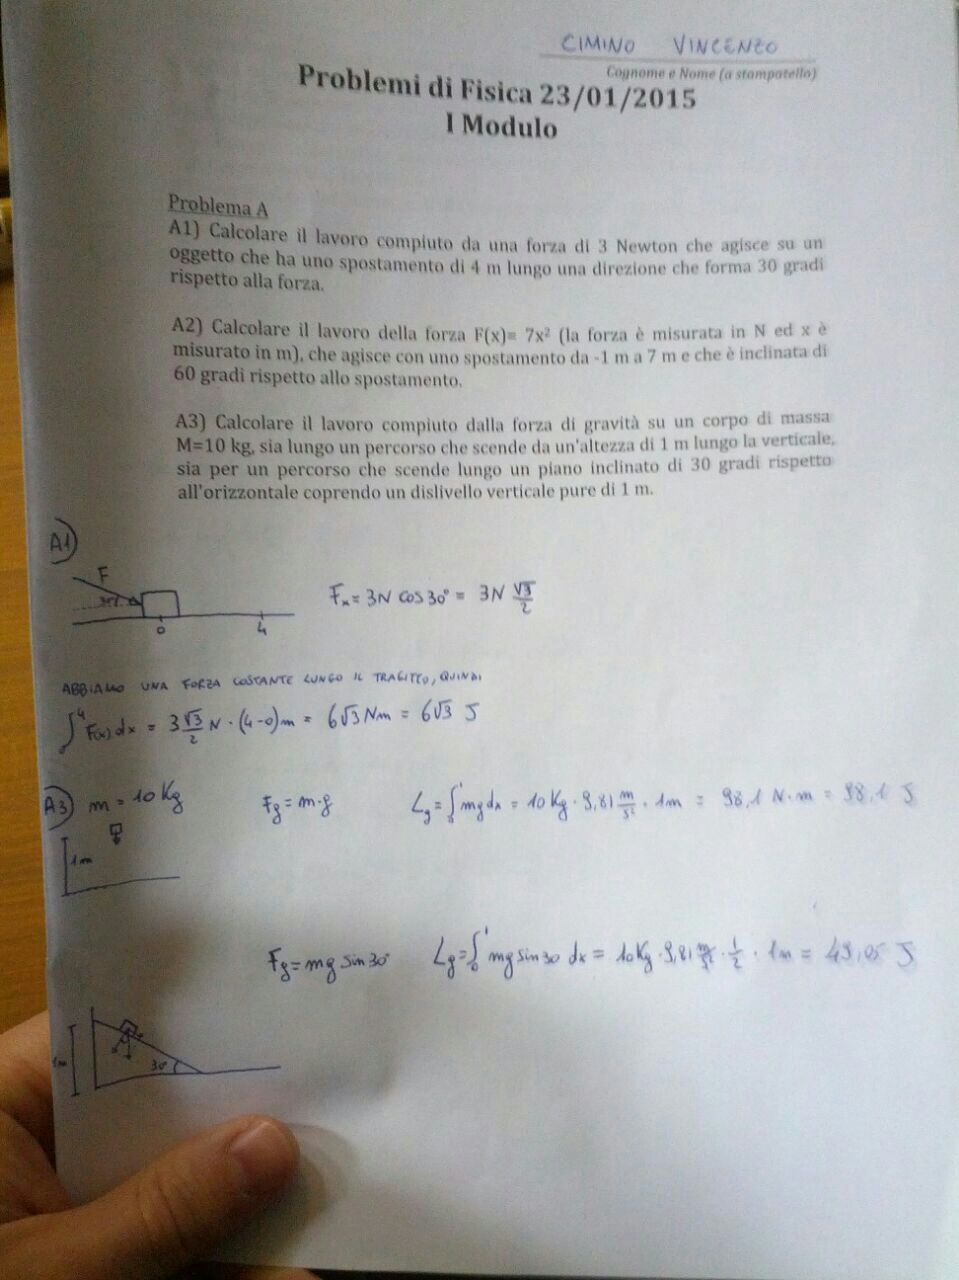 CIMINO VINCENZO
Cognome e Nome (a stampatello)
Problemi di Fisica 23/01/2015
I Modulo
Problema A
A1) Calcolare il lavoro compiuto da una forza di 3 Newton che agisce su un
oggetto che ha uno spostamento di 4 m lungo una direzione che forma 30 gradi
rispetto alla forza.
A2) Calcolare il lavoro della forza F(x)= 7x² (la forza è misurata in N ed x è
misurato in m), che agisce con uno spostamento da -1 m a 7 m e che è inclinata di
60 gradi rispetto allo spostamento.
A3) Calcolare il lavoro compiuto dalla forza di gravità su un corpo di massa
M=10 kg, sia lungo un percorso che scende da un'altezza di 1 m lungo la verticale,
sia per un percorso che scende lungo un piano inclinato di 30 gradi rispetto
all'orizzontale coprendo un dislivello verticale pure di 1 m.
A1)
F
0 4
Fx = 3N cos30° = 3N √3/2
ABBIAMO UNA FORZA COSTANTE LUNGO IL TRAGITTO, QUINDI
∫₀⁴ F(x) dx = 3 √3/2 N · (4-0)m = 6√3 Nm = 6√3 J
A3) m = 10 Kg Fg = m·g Lg = ∫₀¹ mg dx = 10 Kg · 9,81 m/s² · 1m = 98,1 N·m = 98,1 J
1m
Fg = mg sin30° Lg = ∫₀¹ mg sin30 dx = 10Kg · 9,81 m/s² · 1/2 · 1m = 49,05 J
1m
30°